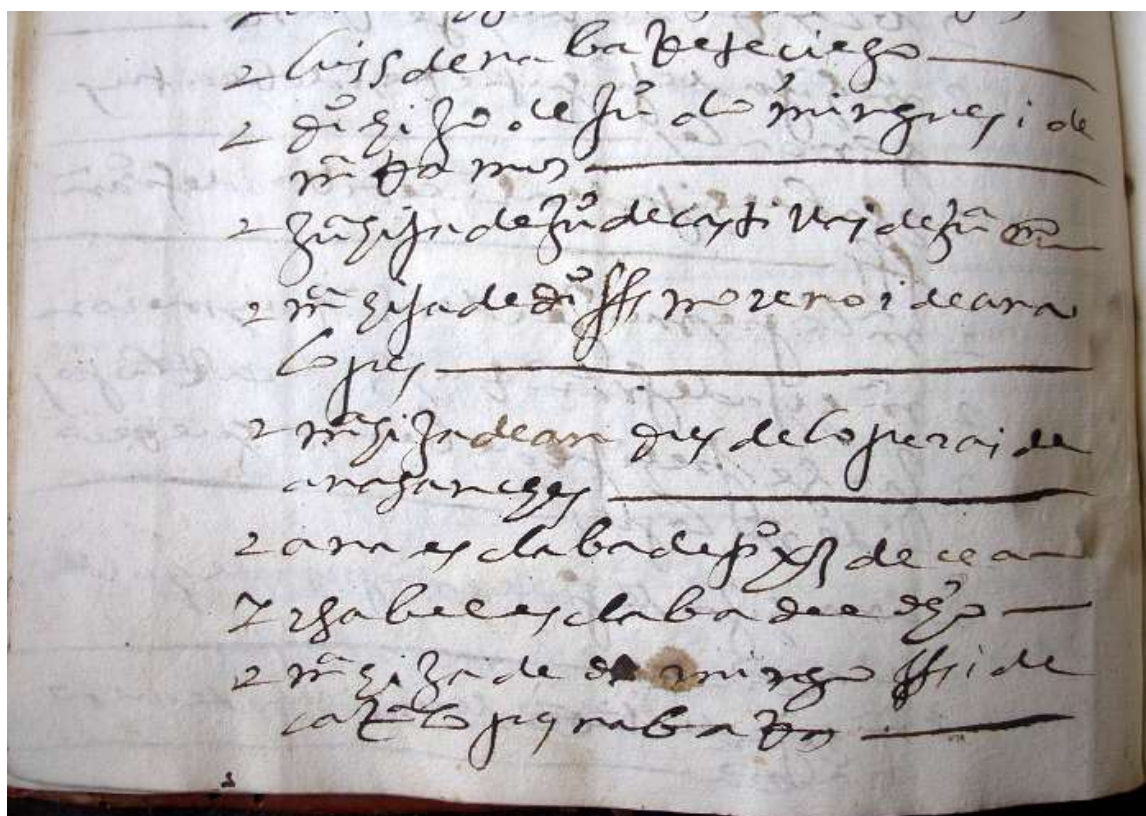 2 luis de naba rrete ciego
2 dio hijo de Juo dominguez i de
ma rramos
2 Jua hija de Juo de castil i de Jua
2 ma hija de do ffs moreno i de ana
lopes
2 ma hija de an dres de lopera i de
ana sanches
2 ana esclaba de po xs de cea
2 ysabel esclaba de el dho
2 ma hija de domingo ffs i de
cata lopes